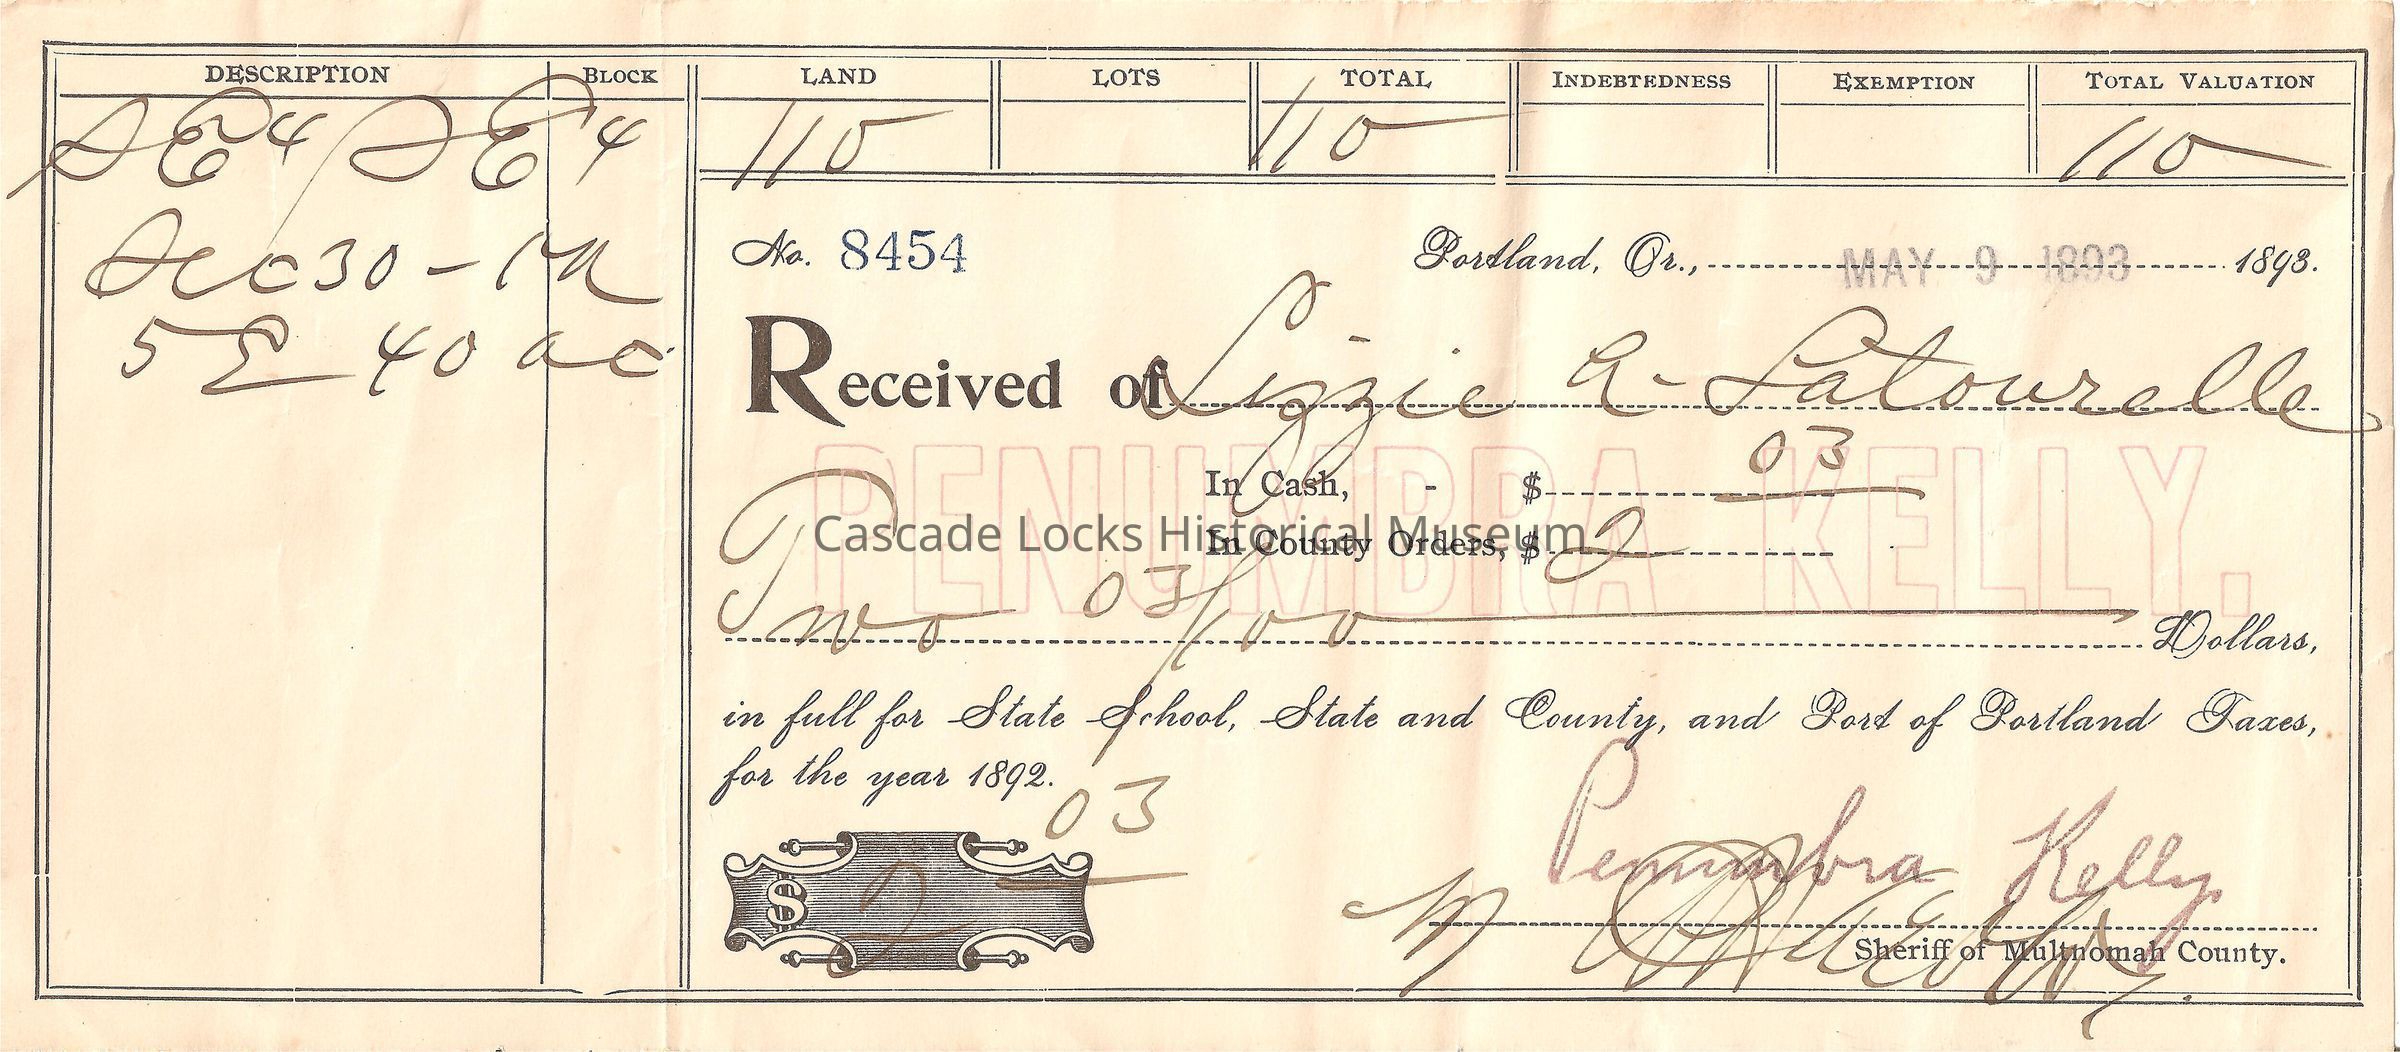 DESCRIPTION BLOCK LAND LOTS TOTAL INDEBTEDNESS EXEMPTION TOTAL VALUATION
SE 4 / SE 4 110 110 110
Sec 30 - 1N
5E 40 ac
No. 8454 Portland, Or., MAY 9 1893 1893.
Received of Lizzie A. Latourelle
PENUMBRA KELLY.
In Cash, - $ 03
Cascade Locks Historical Museum
In County Orders, $ 2
Two 03/100 Dollars,
in full for State School, State and County, and Port of Portland Taxes,
for the year 1892.
$ 2 03
Penumbra Kelly
Sheriff of Multnomah County.